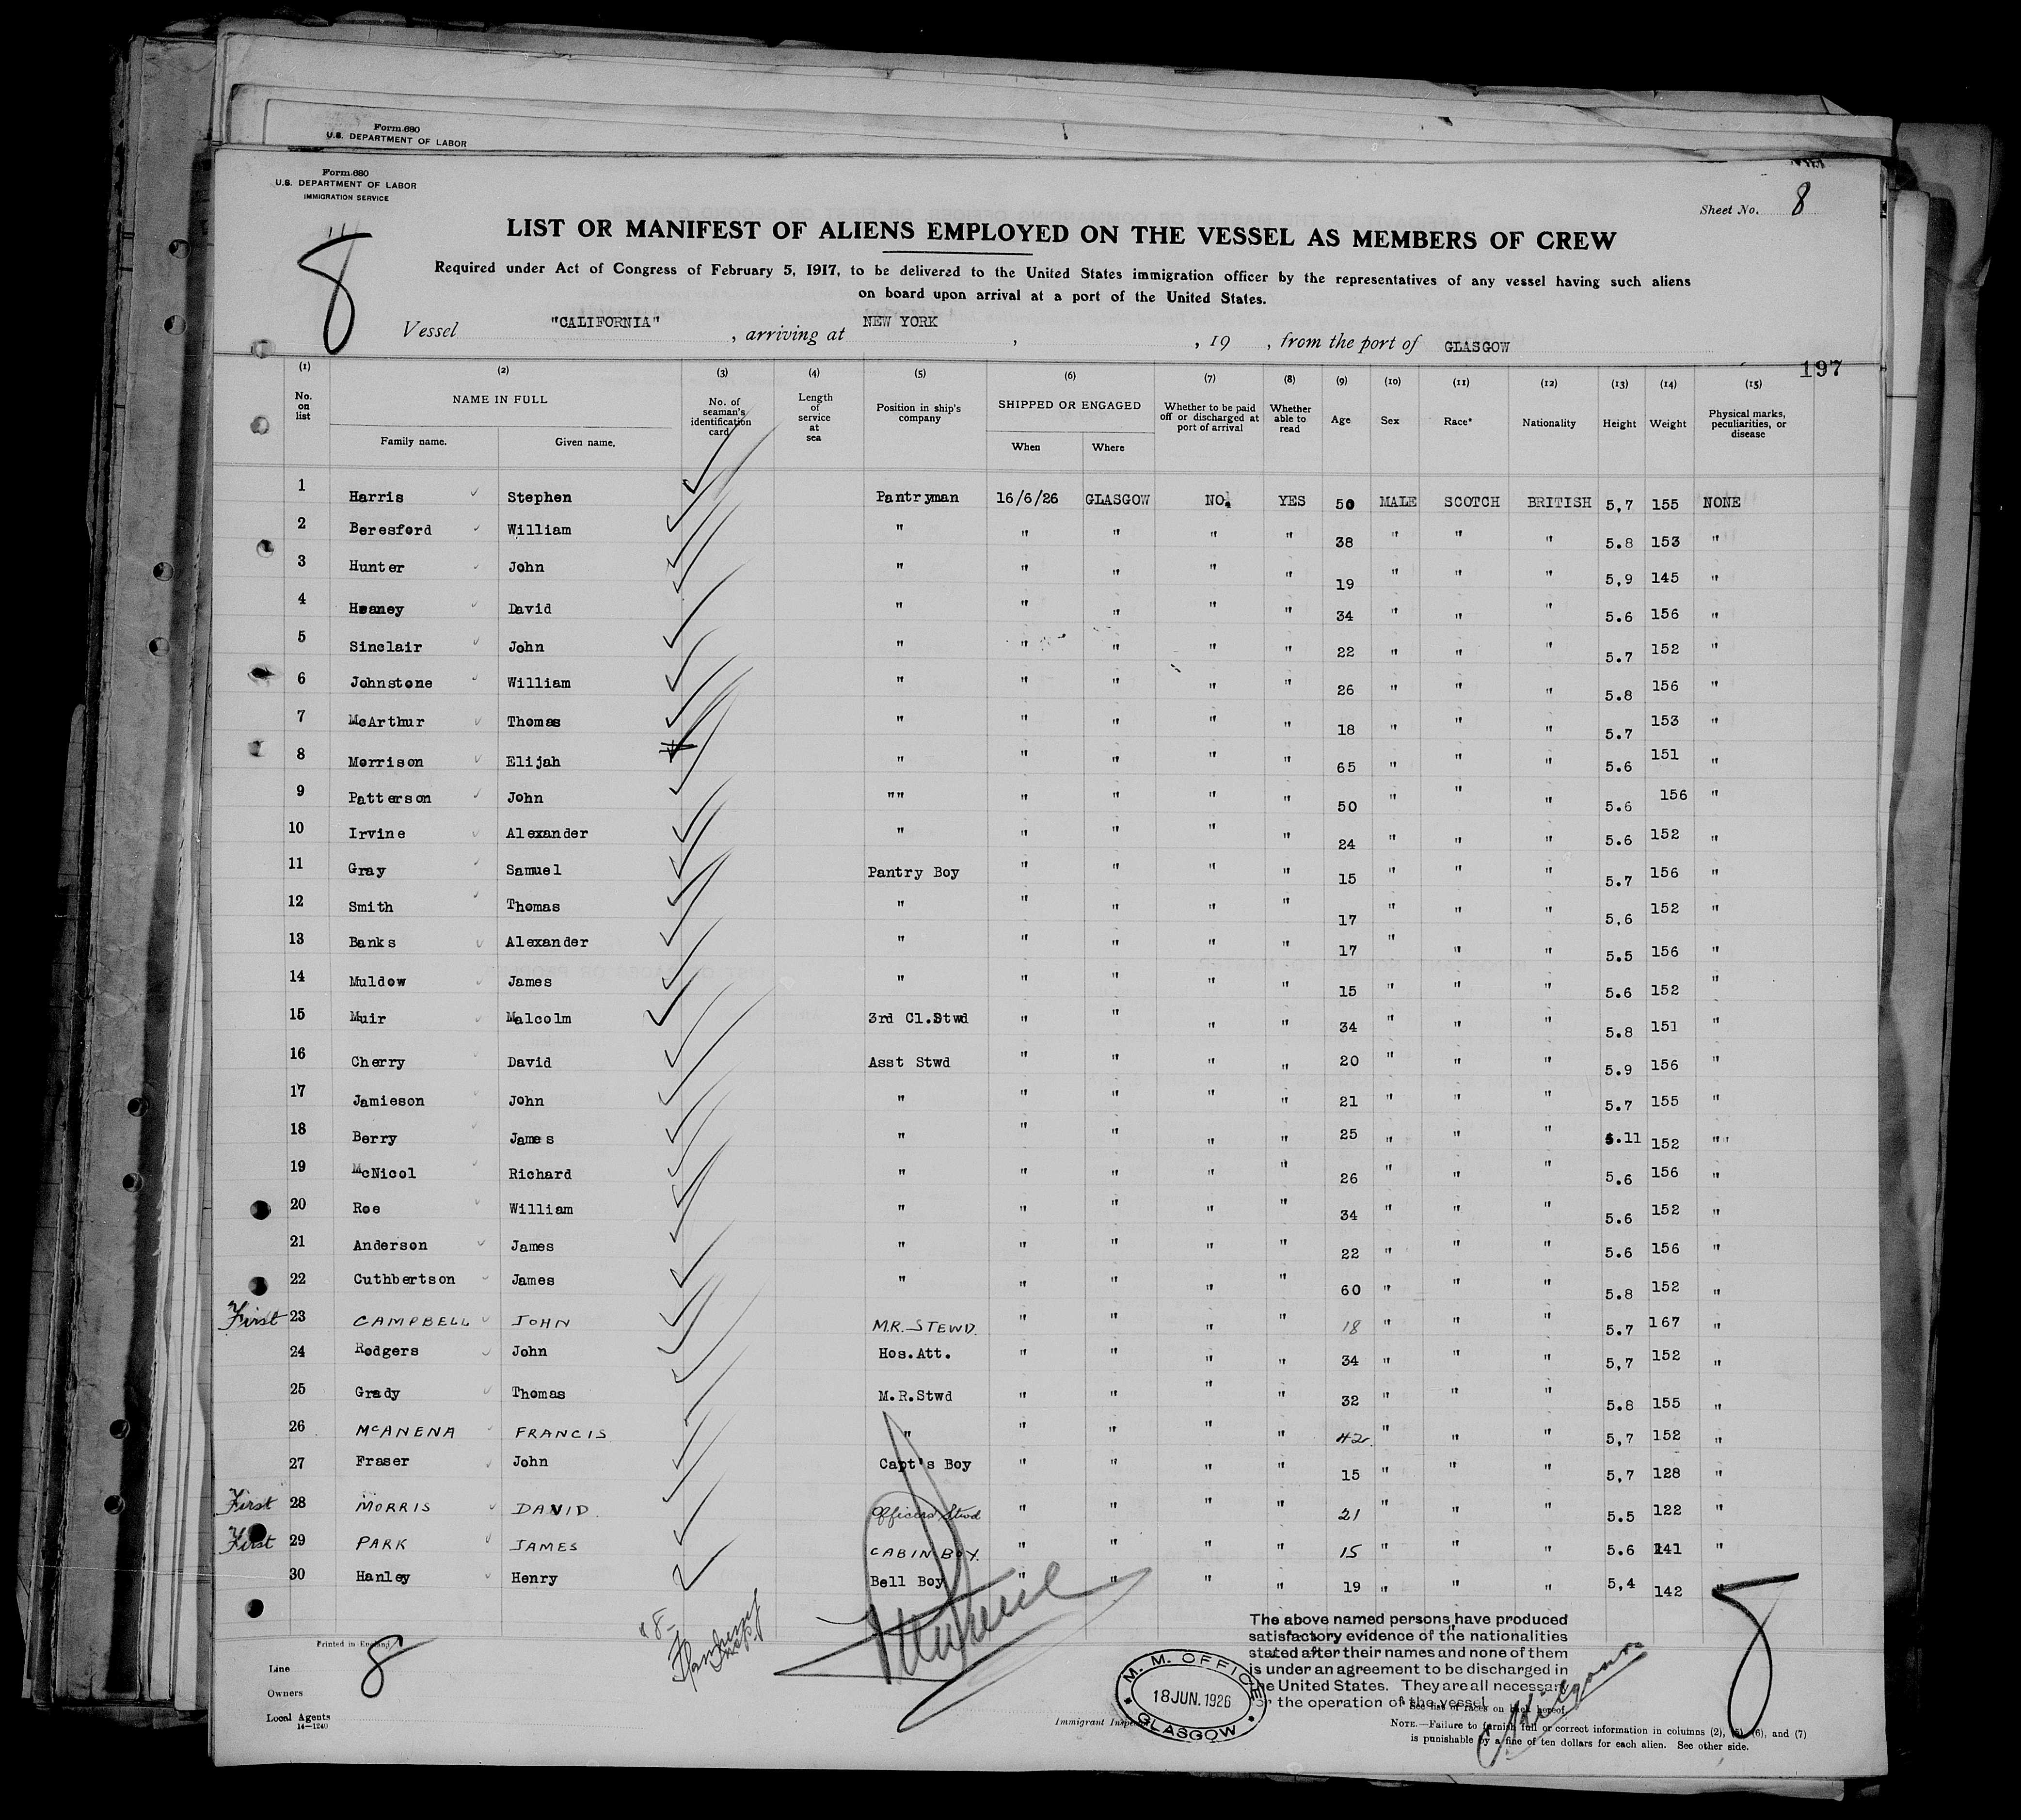 Form 680
U.S. DEPARTMENT OF LABOR
Form 680
U.S. DEPARTMENT OF LABOR
IMMIGRATION SERVICE
Sheet No. 8
8
LIST OR MANIFEST OF ALIENS EMPLOYED ON THE VESSEL AS MEMBERS OF CREW
Required under Act of Congress of February 5, 1917, to be delivered to the United States immigration officer by the representatives of any vessel having such aliens
on board upon arrival at a port of the United States.
Vessel "CALIFORNIA" , arriving at NEW YORK , , 19 , from the port of GLASGOW
197
(1) (2) (3) (4) (5) (6) (7) (8) (9) (10) (11) (12) (13) (14) (15)
No. on list NAME IN FULL Family name. Given name. No. of seaman's identification card Length of service at sea Position in ship's company SHIPPED OR ENGAGED When Where Whether to be paid off or discharged at port of arrival Whether able to read Age Sex Race* Nationality Height Weight Physical marks, peculiarities, or disease
1 Harris Stephen Pantryman 16/6/26 GLASGOW NO. YES 50 MALE SCOTCH BRITISH 5,7 155 NONE
2 Beresford William " " " " " 38 " " " 5.8 153 "
3 Hunter John " " " " " 19 " " " 5,9 145 "
4 Heaney David " " " " " 34 " " " 5.6 156 "
5 Sinclair John " " " " " 22 " " " 5.7 152 "
6 Johnstone William " " " " " 26 " " " 5.8 156 "
7 McArthur Thomas " " " " " 18 " " " 5.7 153 "
8 Morrison Elijah " " " " " 65 " " " 5.6 151 "
9 Patterson John "" " " " " 50 " " " 5.6 156 "
10 Irvine Alexander " " " " " 24 " " " 5.6 152 "
11 Gray Samuel Pantry Boy " " " " 15 " " " 5.7 156 "
12 Smith Thomas " " " " " 17 " " " 5,6 152 "
13 Banks Alexander " " " " " 17 " " " 5.5 156 "
14 Muldow James " " " " " 15 " " " 5.6 152 "
15 Muir Malcolm 3rd Cl.Stwd " " " " 34 " " " 5.8 151 "
16 Cherry David Asst Stwd " " " " 20 " " " 5.9 156 "
17 Jamieson John " " " " " 21 " " " 5.7 155 "
18 Berry James " " " " " 25 " " " 5.11 152 "
19 McNicol Richard " " " " " 26 " " " 5.6 156 "
20 Roe William " " " " " 34 " " " 5.6 152 "
21 Anderson James " " " " " 22 " " " 5.6 156 "
22 Cuthbertson James " " " " " 60 " " " 5.8 152 "
First 23 CAMPBELL JOHN M.R. STEWD. " " " " 18 " " " 5.7 167 "
24 Rodgers John Hos.Att. " " " " 34 " " " 5,7 152 "
25 Grady Thomas M.R.Stwd " " " " 32 " " " 5.8 155 "
26 McANENA FRANCIS " " " " " 42 " " " 5,7 152 "
27 Fraser John Capt's Boy " " " " 15 " " " 5,7 128 "
First 28 MORRIS DAVID. Officers Stwd " " " " 21 " " " 5.5 122 "
First 29 PARK JAMES CABIN BOY. " " " " 15 " " " 5.6 141 "
30 Hanley Henry Bell Boy " " " " 19 " " " 5,4 142
8
The above named persons have produced
satisfactory evidence of the nationalities
stated after their names and none of them
is under an agreement to be discharged in
the United States. They are all necessary
for the operation of the vessel
Printed in England
8
Line
Owners
Local Agents
14—1240
Immigrant Inspector
M. M. OFFICE
18 JUN. 1926
GLASGOW
* See list of races on back hereof.
NOTE.—Failure to furnish full or correct information in columns (2), (5), (6), and (7)
is punishable by a fine of ten dollars for each alien. See other side.